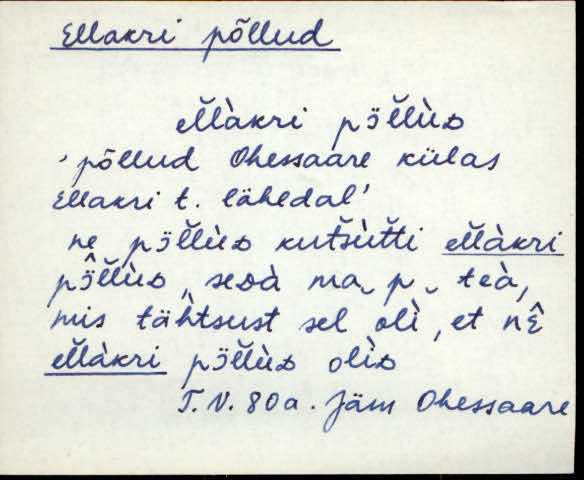 Ellakri põllud
el̆l̆àkri pɔ̈l̆l̆ùᴅ
'põllud Ohessaare külas
Ellakri t. lähedal'
ne pɔ̈l̆l̆ùᴅ kut̆sùt̆ti el̆l̆àkri
pɔ̭̈̂l̆l̆ùᴅ, seᴅà ma‿p‿teà,
mis tähtsust sel olì, et nê̬
el̆l̆àkri pɔ̈l̆l̆ùᴅ olìᴅ
T.V. 80a. Jäm Ohessaare